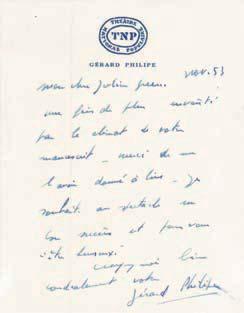 THÉÂTRE NATIONAL POPULAIRE
TNP
GÉRARD PHILIPE
nov. 53
mon cher Julien Green.
une fois de plus envoûté
par le climat de votre
manuscrit - merci de me
l'avoir donné à lire - Je
souhaite au spectacle un
bon succès et pour vous
d'être heureux.
croyez moi bien
cordialement votre
Gérard Philipe